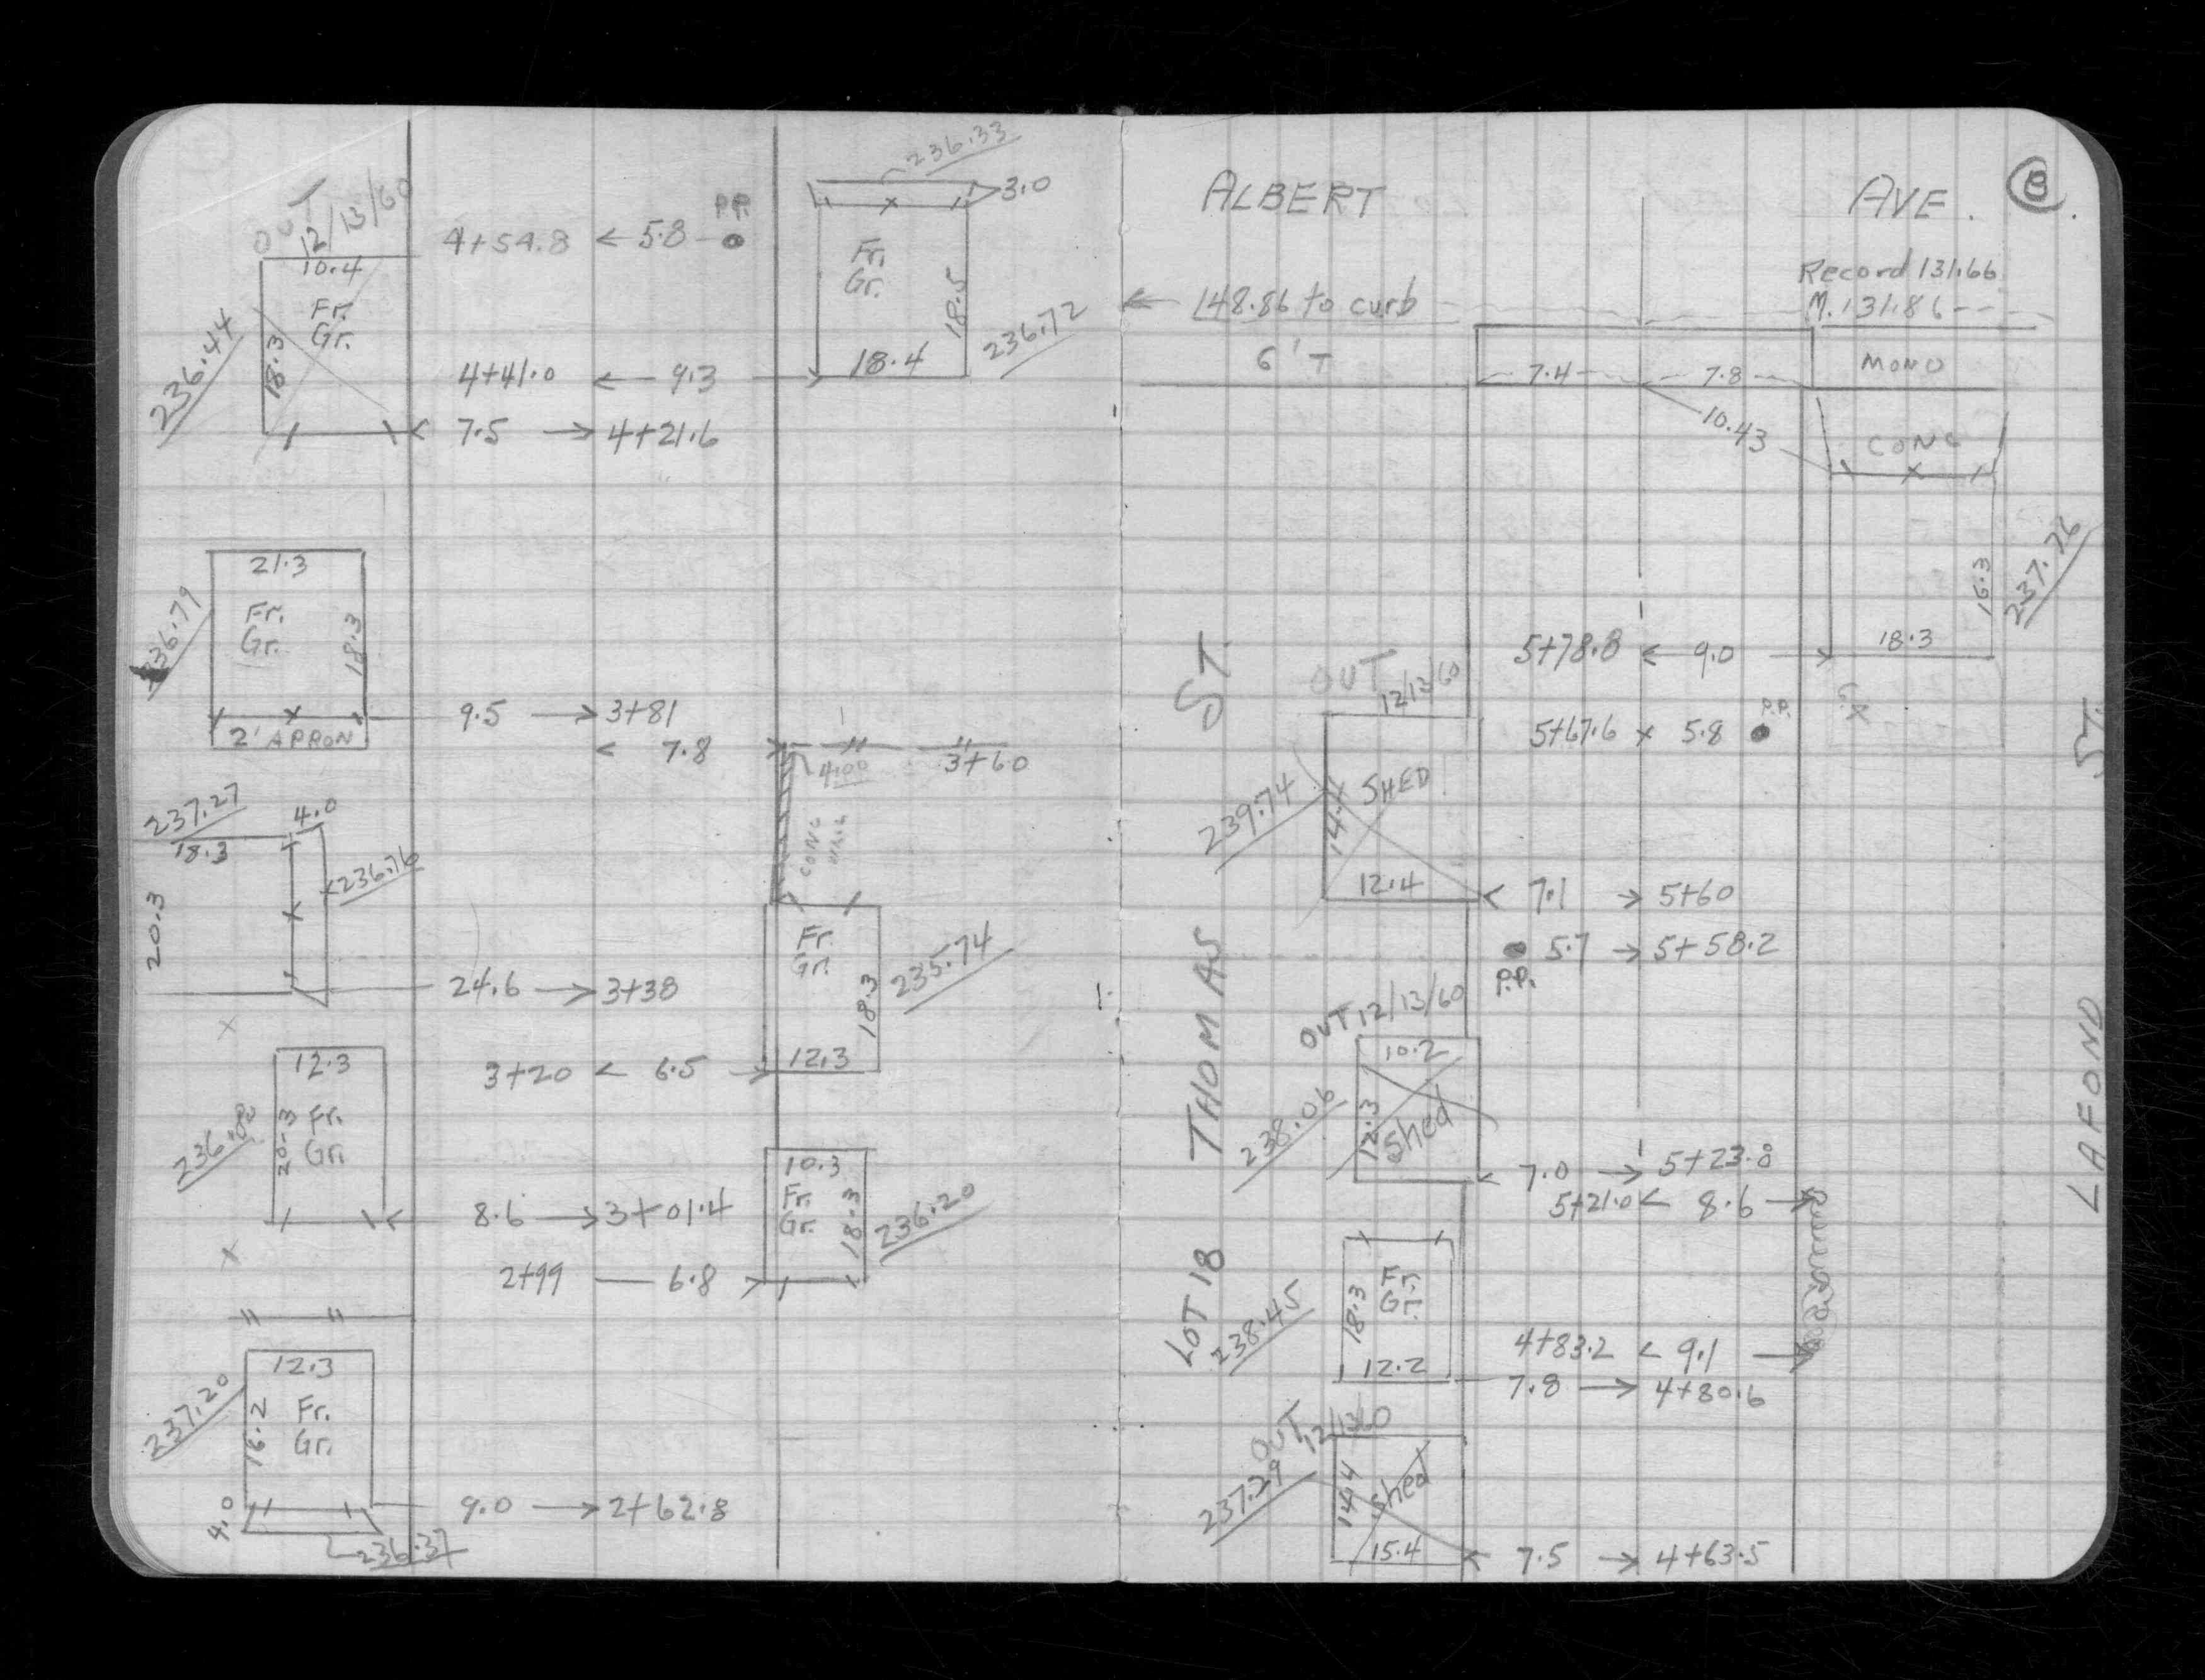 236.33
OUT
12/13/60
P.P.
3.0
4+54.8 ← 5.8
10.4
Fr.
Gr.
18.5
Fr.
Gr.
18.3
236.44
236.72
4+41.0 ← 9.3 →
18.4
7.5 → 4+21.6
21.3
Fr.
Gr.
18.3
236.79
9.5 → 3+81
2' APRON
← 7.8 →
4.00
3+60
237.27
4.0
18.3
236.76
CONC
20.3
Fr.
Gr.
18.3
235.74
24.6 → 3+38
12.3
3+20 ← 6.5 →
12.3
Fr.
Gr.
20.3
10.3
Fr.
Gr.
18.3
236.20
8.6 → 3+01.4
2+99 — 6.8 →
12.3
237.20
Fr.
Gr.
4.0
9.0 → 2+62.8
236.37
ALBERT AVE. 8
Record 131.66
← 148.86 to curb
M. 131.86
6' T
7.4
7.8
MONO
10.43
CONC
16.3
237.76
5+78.8 ← 9.0 →
18.3
OUT
12/13/60
P.P.
5+67.6 × 5.8
ST.
ST.
SHED
14.4
239.74
12.4
7.1 → 5+60
5.7 → 5+58.2
P.P.
THOMAS
OUT 12/13/60
10.2
12.3
Shed
238.06
LAFOND
7.0 → 5+23.8
5+21.0 ← 8.6 →
LOT 18
Fr.
Gr.
18.3
238.45
4+83.2 ← 9.1 →
12.2
7.8 → 4+80.6
OUT 12/13/60
Shed
14.4
237.29
15.4
7.5 → 4+63.5